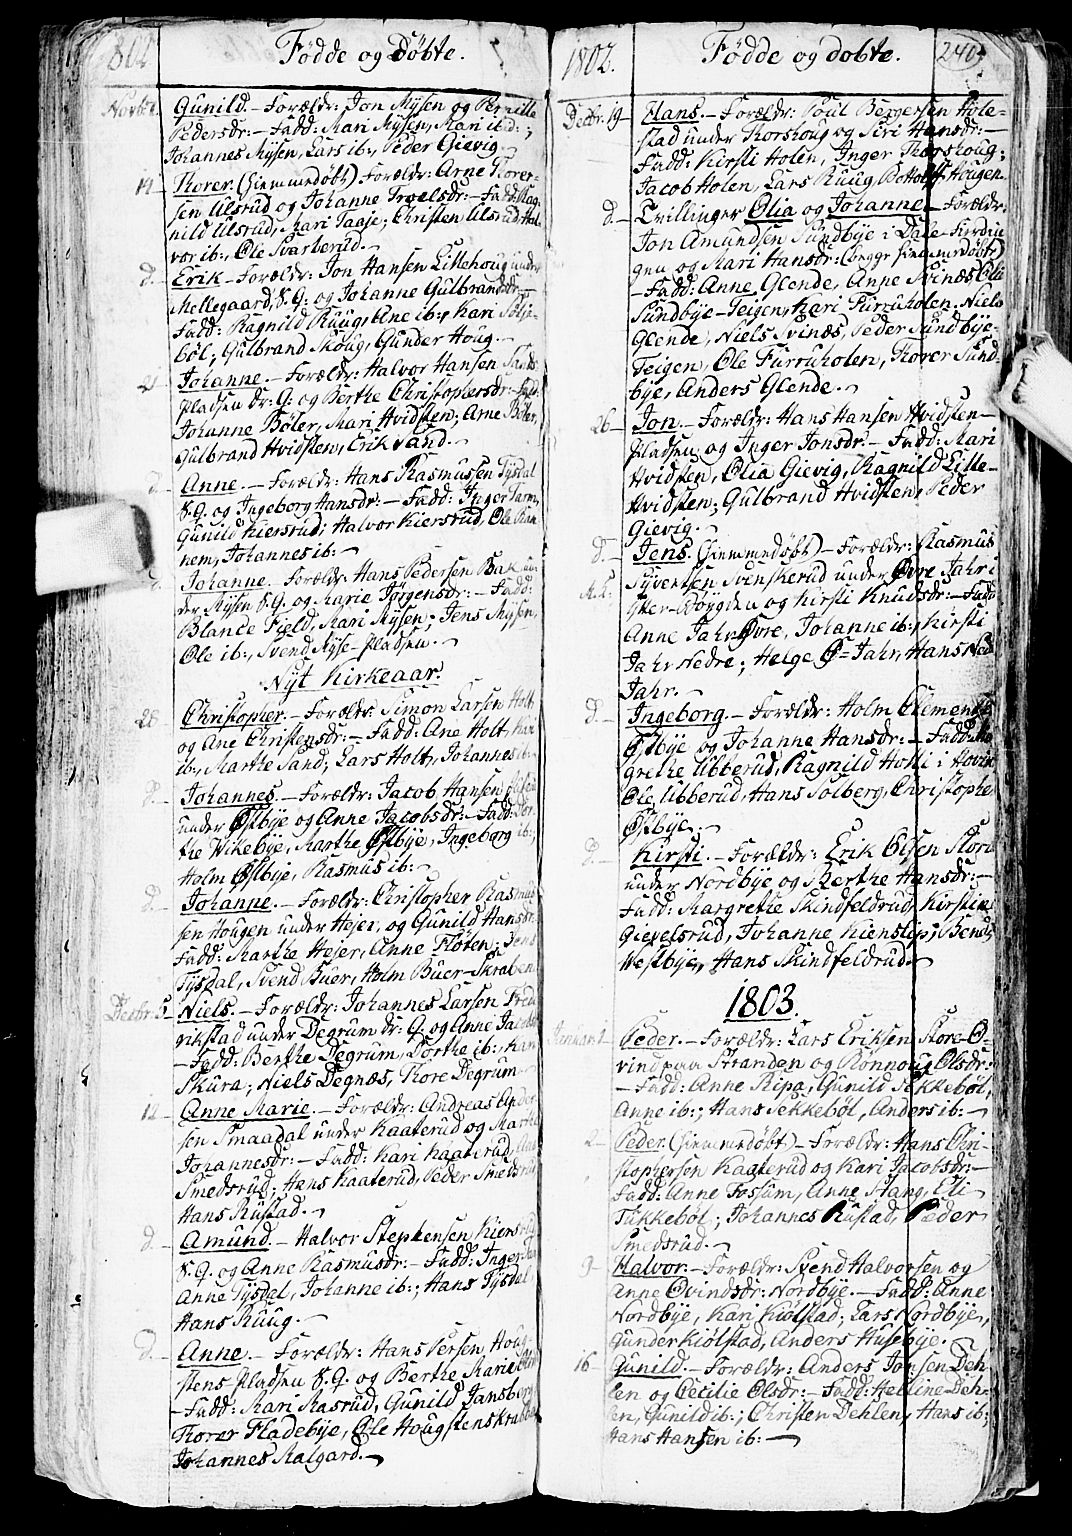 1802
Fødde og døbte.
Novbr.
Gunild. – Forældr: Jon Mysen og Pernille
Pedersdr: – Fadd: Mari Mysen, Mari ibid:;
Johannes Mysen, Lars ib:, Peder Gievig.
14. Thorer. (hiemmedøbt) Forældr: Arne Thorer-
sen Ulsrud og Johanne Troelsdr: – Fadd: Rag-
nild Ulsrud, Mari Taaje; Christen Ulsrud, Hal-
vor ib:, Ole Svarberud.
d. – Erik – Forældr: Jon Hansen Lillehoug under
Mellegaard, S. G: og Johanne Gulbrandsdr: –
Fadd: Ragnild Ruug, Ane ib:, Kari
bøl; Gulbrand Skoug, Gunder Houg. –
21 Johanne. – Forældr: Halvor Hansen Sands-
Pladsen dr: G: og Berthe Christophersdr: – Fadd:
Johanne Bøler, Mari Hvidsten; Arne Bøler,
Gulbrand Hvidsten, Erik Sand.
d. – Anne. – Forældr: Hans Rasmussen Tysdal
S. G. og Ingeborg Hansdr: – Fadd: Inger
Gunild Kiersrud; Halvor Kiersrud, Ole Ran-
nem, Johannes ib: –
d. Johanne. Forældr: Hans Pedersen Bak un-
der Mysen S. G. og Marie Jørgensdr: – Fadd:
Blance Field, Mari Mysen; Jens Mysen,
Ole ib:, Svend Myse-Pladsen. –
Nyt Kirkeaar.
28. Christopher. – Forældr: Simon Larsen Holt
og Ane Christensdr: – Fadd: Ane Holt, Kari
ib:, Marthe Sand; Lars Holt, Johannes ib: –
d. – Johannes. – Forældr: Jacob Hansen
under Østbye og Anne Jacobsdr: – Fadd: Dor-
the Wikebye, Marthe Østbye, Ingeborg ib:,
Holm Østbye, Rasmus ib: –
d. – Johanne. – Forældr: Christopher Rasmus-
sen Hougen under Hejer, og Gunild Hansdr:
Fadd: Marthe Hejer, Anne Fløten; Jens
Tysdal, Svend Buer, Holm Buer-Skraben
Decbr: 5. Niels. – Forældr: Johannes Larsen Fred-
rikstad under Degrum dr: G. og Anne Jacobsdr
– Fadd: Berthe Degrum, Dorthe ib:, Kari
Skura; Niels Degnæs, Thore Degrum –
12 – Anne Marie. – Forældr: Andreas Ander-
sen Smaadal under Kaaterud og Marthe
Johannesdr: – Fadd: Kari Kaaterud,
Smedsrud; Hans Kaaterud, Peder Smedsrud
Hans Rustad. –
d – Amund. – Halvor Stephensen Kiersrud
S. G. og Anne Rasmusdr: – Fadd: Inger
Anne Tysdal, Johanne ib:; Hans Tysdal,
Hans Ruug. –
d. – Anne. – Forældr: Hans Persen Houg-
stens Pladsen S. G. og Berthe Marie
– Fadd: Mari Rasrud, Gunild Jansborg
Thorer Fladebye, Ole Hougstenskrabben
Johannes Aalgard. –
1802.
Fødde og døbte.
240
Decbr: 19 – Hans. – Forældr: Poul Bergersen Hole-
stad under Thorshoug og Siri Hansdr: –
Fadd: Kirsti Holen, Inger Thorshoug;
Jacob Holen, Lars Ruug, Botholff Hougen
d. – Tvillinger Olia og Johanne – Forældr:
Jon Amundsen Sundbye i Dale-Fierdin-
gen og Mari Hansdr: (begge hiemmedøbt)
– Fadd: Anne Glende, Anne Svinæs, Oli
Sundbye-Teigen, Kari Furruholen; Niels
Glende, Niels Svinæs, Peder Sundbye-
Teigen, Ole Furruholen, Thorer Sund-
bye, Anders Glende. –
26 – Jon. – Forældr: Hans Hansen Hvidsten-
Pladsen og Inger Jonsdr: – Fadd: Mari
Hvidsten, Olia Gievig, Ragnild Lille-
Hvidsten; Gulbrand Hvidsten, Peder
Gievig. –
d. – Jens. (hiemmedøbt) – Forældr: Rasmus
Syvertsen Svenskerud under Øvre Jahr i
-Bøygden og Kirsti Knudsdr: – Fadd
Anne Jahr Øvre, Johanne ib:, Kirsti
Jahr Nedre; Helge Ø= Jahr, Hans Ned
Jahr. –
d. – Ingeborg. – Forældr: Holm Clements
Østbye og Johanne Hansdr: – Fadd: Ma-
grethe Ubberud, Ragnild Holli i Hovin
Ole Ubberud, Hans Solberg, Christophe
Østbye. –
d. – Kirsti. – Forældr: Erik Olsen
under Nordbye og Berthe Hansdr: –
Fadd: Margrethe Skindfeldrud, Kirstine
Gievelsrud, Johanne Kienslie; Bendt
Westbye, Hans Skindfeldrud. –
1803.
Januar 1 – Peder. – Forældr: Lars Eriksen Store Ø-
vind paa Stranden og Rønnoug Olsdr:
– Fadd: Anne Ripa, Gunild Sekkebøl,
Anne ib:; Hans Sekkebøl, Anders ib: –
2 – Peder. (hiemmedøbt) – Forældr: Hans Chri-
stophersen Kaaterud og Kari Jacobsdr: –
Fadd: Anne Fossum, Anne Stang, Eli
Tukkebøl; Johannes Rustad, Peder
Smedsrud. –
9 – Halvor. – Forældr: Svend Halvorsen og
Anne Øvindsdr: Nordbye. – Fadd: Anne
Nordbye, Kari Kiølstad; Lars Nordbye,
Gunder Kiølstad, Anders Husebye. –
16 – Gunild. – Forældr: Anders Jonsen Deh-
len og Cecilie Olsdr: – Fadd: Helline Deh-
len, Gunild ib:; Christen Dehlen, Hans ib:,
Hans Hansen ib: –